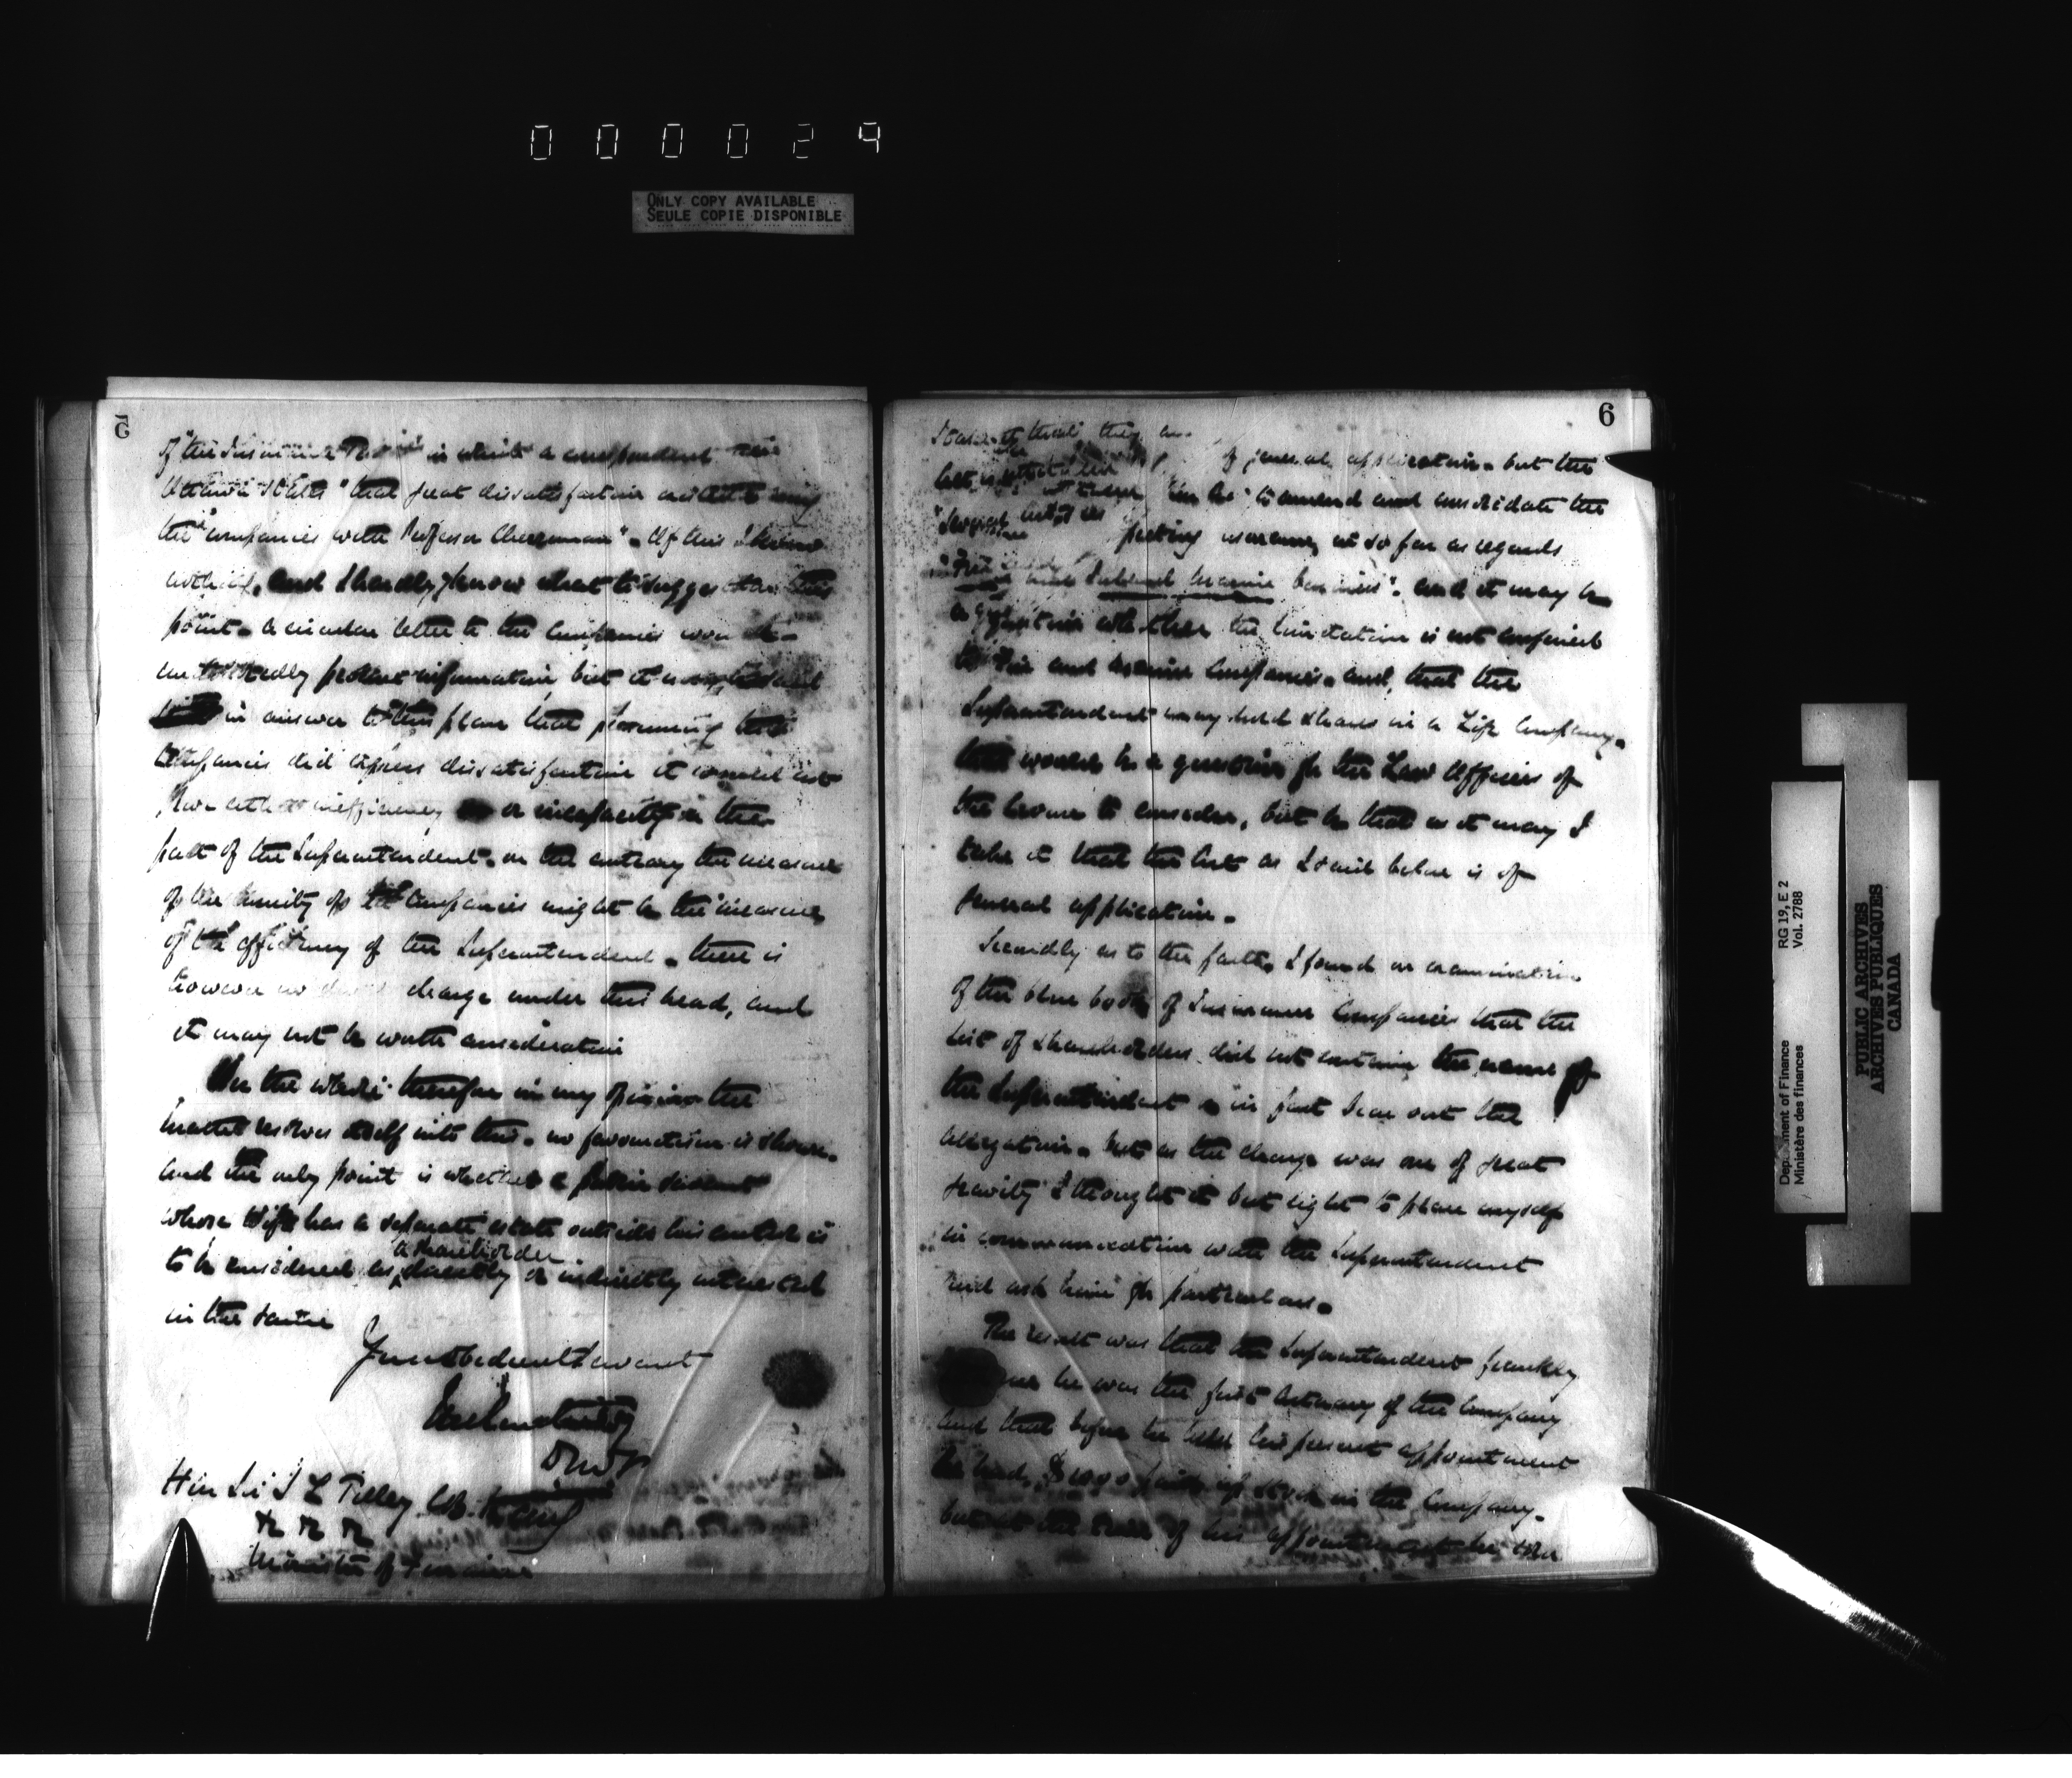 000029
ONLY COPY AVAILABLE
SEULE COPIE DISPONIBLE
5
of "the Insurance in which a correspondent
Ottawa states "that great dissatisfaction exists among
the "companies with Professor Cherriman". Of this I know
nothing, and I hardly know what to suggest on this
point. a circular letter to the Companies would
undoubtedly produce information, but it
in answer to this plan that presuming that
Companies did express dissatisfaction it would not
prove either inefficiency or incapacity in the
part of the Superintendent. on the contrary the measure
of the enmity of the Companies might be the measure
of the efficiency of the Superintendent. there is
however no charge under this head, and
it may not be worth consideration
On the whole therefore in my opinion the
matter resolves itself into this. no favouritism is shown.
and the only point is whether a public servant
whose wife has a separate estate outside his control is
to be considered as a shareholder directly or indirectly interested
in the same
Your obedient servant
DM
Hon Sir S L Tilley CB. KCMG
Minister of Finance
6
that they are of general application. but the
last is "an Act to amend and consolidate the
"several acts respecting insurance, in so far as regards
"Fire and Inland Marine business". and it may be
a question whether the limitation is not confined
to Fire and marine Companies. and, that the
Superintendent may hold shares in a Life Company.
that would be a question for the Law Officers of
the Crown to consider, but be that as it may I
take it that the Act as I said before is of
general application.
Secondly as to the facts. I found on examination
of the blue book of Insurance Companies that the
list of shareholders did not contain the name of
the Superintendent in fact bear out the
allegation. but as the charge was one of great
gravity I thought it but right to place myself
in communication with the Superintendent
and ask him for particulars.
The result was that the Superintendent frankly
me he was the first Actuary of the Company
and that before he took his present appointment
he had $1000 paid up stock in the Company.
but at the time of his appointment he
Department of Finance RG 19, E 2
Ministère des finances Vol. 2788
PUBLIC ARCHIVES
ARCHIVES PUBLIQUES
CANADA